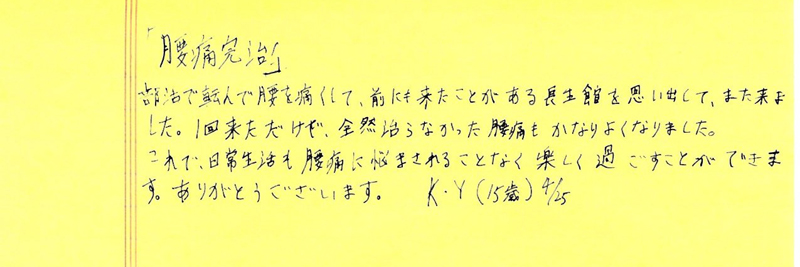 「腰痛完治」
部活で転んで腰を痛くして、前にも来たことがある長生館を思い出して、また来ま
した。1回来ただけで、全然治らなかった腰痛もかなりよくなりました。
これで、日常生活も腰痛に悩まされることなく楽しく過ごすことができま
す。ありがとうございます。 K・Y(15歳)4/25